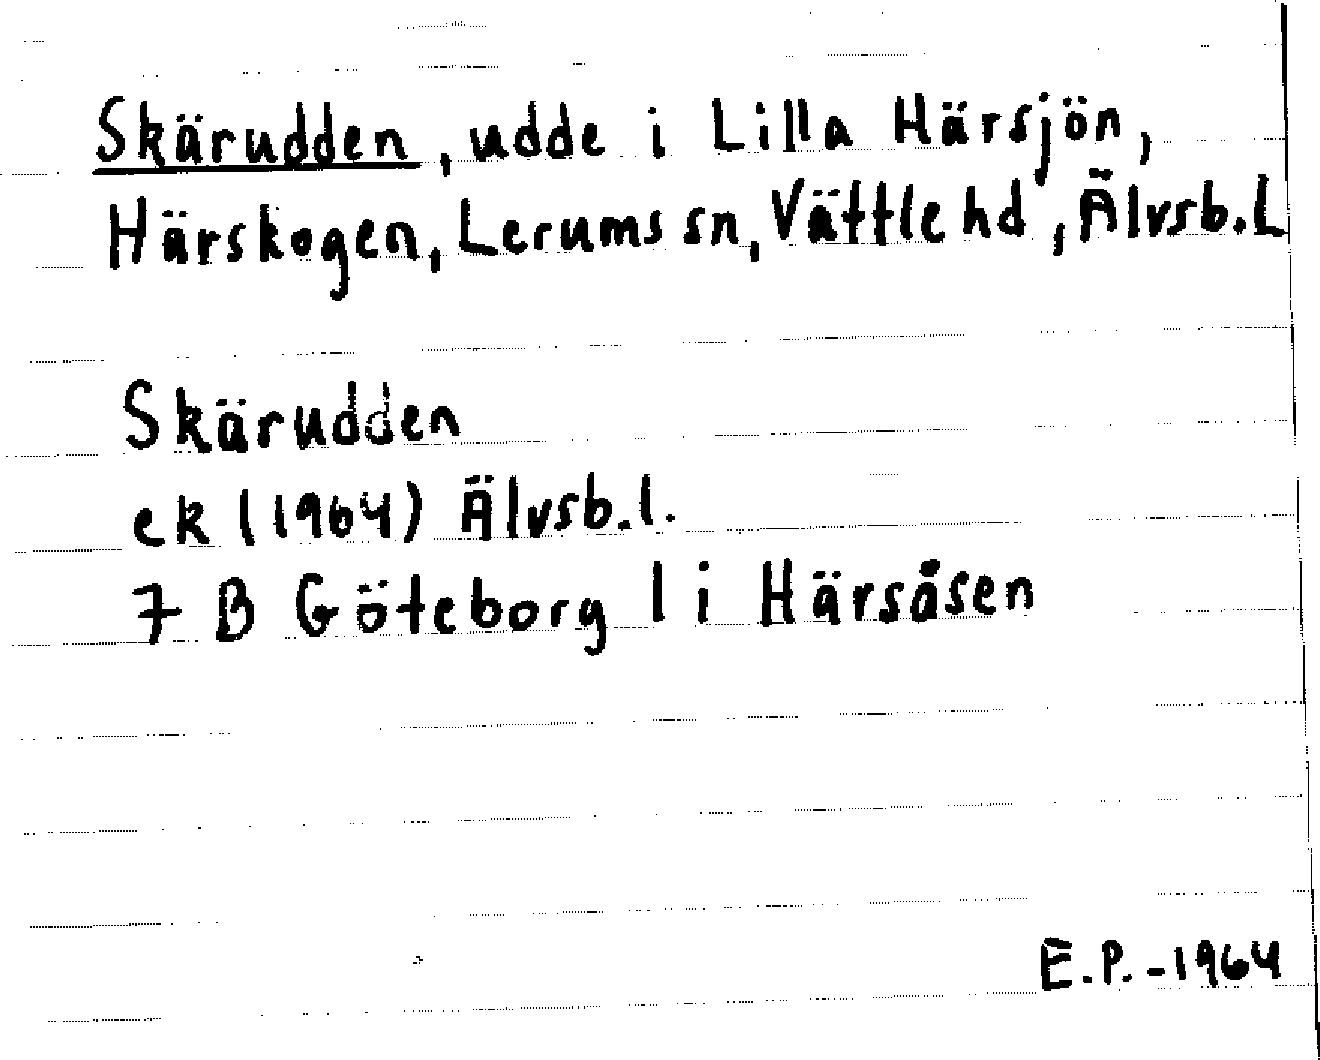 Skärudden, udde i Lilla Härsjön,
Härskogen, Lerums sn, Vättle hd, Älvsb.L
Skärudden
ek (1964) Älvsb.l.
7 B Göteborg 1 i Härsåsen
E.P.-1964